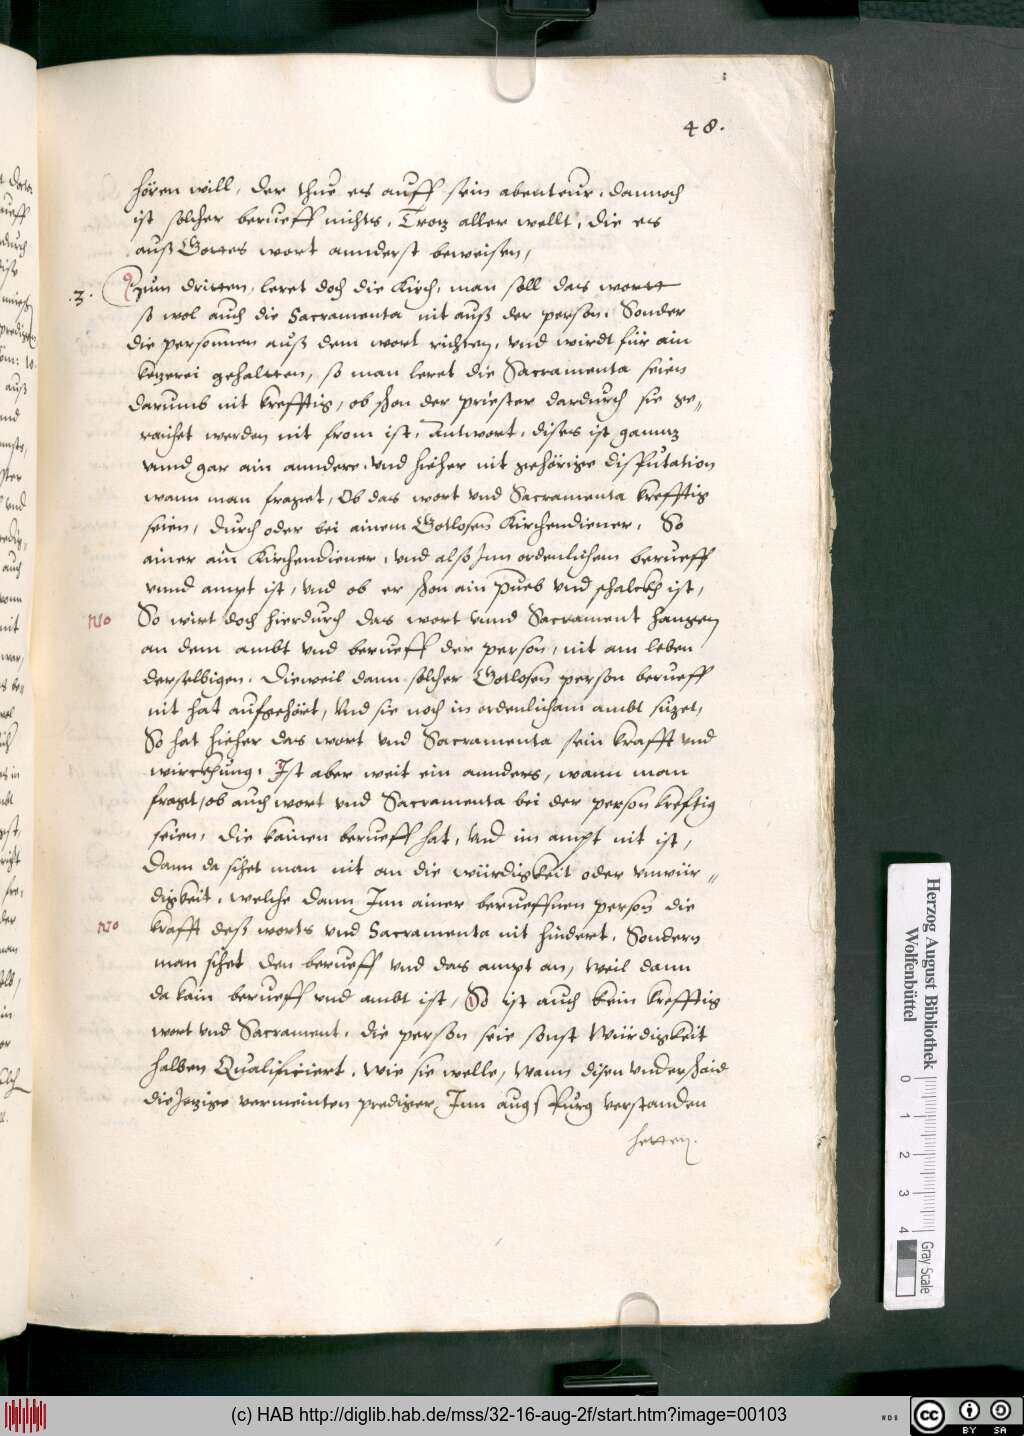 48.
hören will, der thue es auff sein abenteur, dannoch
ist solcher berueff nichts, Trotz aller wellt, die es
auß Gottes wort annderst beweisen,
.3. Zum dritten, leret doch die Kirch, man soll das wortt
so wol auch die Sacramenta nit auß der person, Sonder
die personnen auß dem wort richten, vnd wirdt für ain
ketzerei gehaltten, so man leret die Sacramenta seien
darumb nit krefftig, ob schon der priester dardurch sie ge„
raichet werden nit from ist, Antwort, dises ist ganntz
vnnd gar ain anndere, vnd hieher nit gehörige disputation
wann man fraget, Ob das wort vnd Sacramenta krefftig
seien, durch oder bei ainem Gotlosen Kirchendiener, So
ainer ain Kirchendiener, vnd also Jnn ordenlichem berueff
vnnd ampt ist, vnd ob er schon ain pueb vnd schalckh ist,
No So wirt doch hierdurch das wort vnnd Sacrament hangen
an dem ambt vnd berueff der person, nit am leben
derselbigen. Dieweil dann solcher Gotlosen person berueff
nit hat aufgehört, Vnd sie noch in ordenlicham ambt sitzet,
So hat hieher das wort vnd Sacramenta sein krafft vnd
wirckhung. Jst aber weit ein annders, wann man
fragt, ob auch wort vnd Sacramenta bei der person kreftig
seien, die kainen berueff hat, Vnd im ampt nit ist,
Dann da sihet man nit an die würdigkeit oder vnwür„
digkeit, welche dann Jnn ainer berueffnen person die
No krafft deß worts vnd Sacramenta nit hindert, Sondern
man sihet den berueff vnd das ampt an, weil dann
da kain berueff vnd ambt ist, So ist auch kein krefftig
wort vnd Sacrament, die person seie sonst Würdigkeit
halben Qualificiert, wie sie welle, Wann disen vnderschaid
die Jetzige vermeinten prediger Jnn augspurg verstanden
hetten.
Herzog August Bibliothek
Wolfenbüttel
0 1 2 3 4
Gray Scale
(c) HAB http://diglib.hab.de/mss/32-16-aug-2f/start.htm?image=00103
WDB
cc BY SA